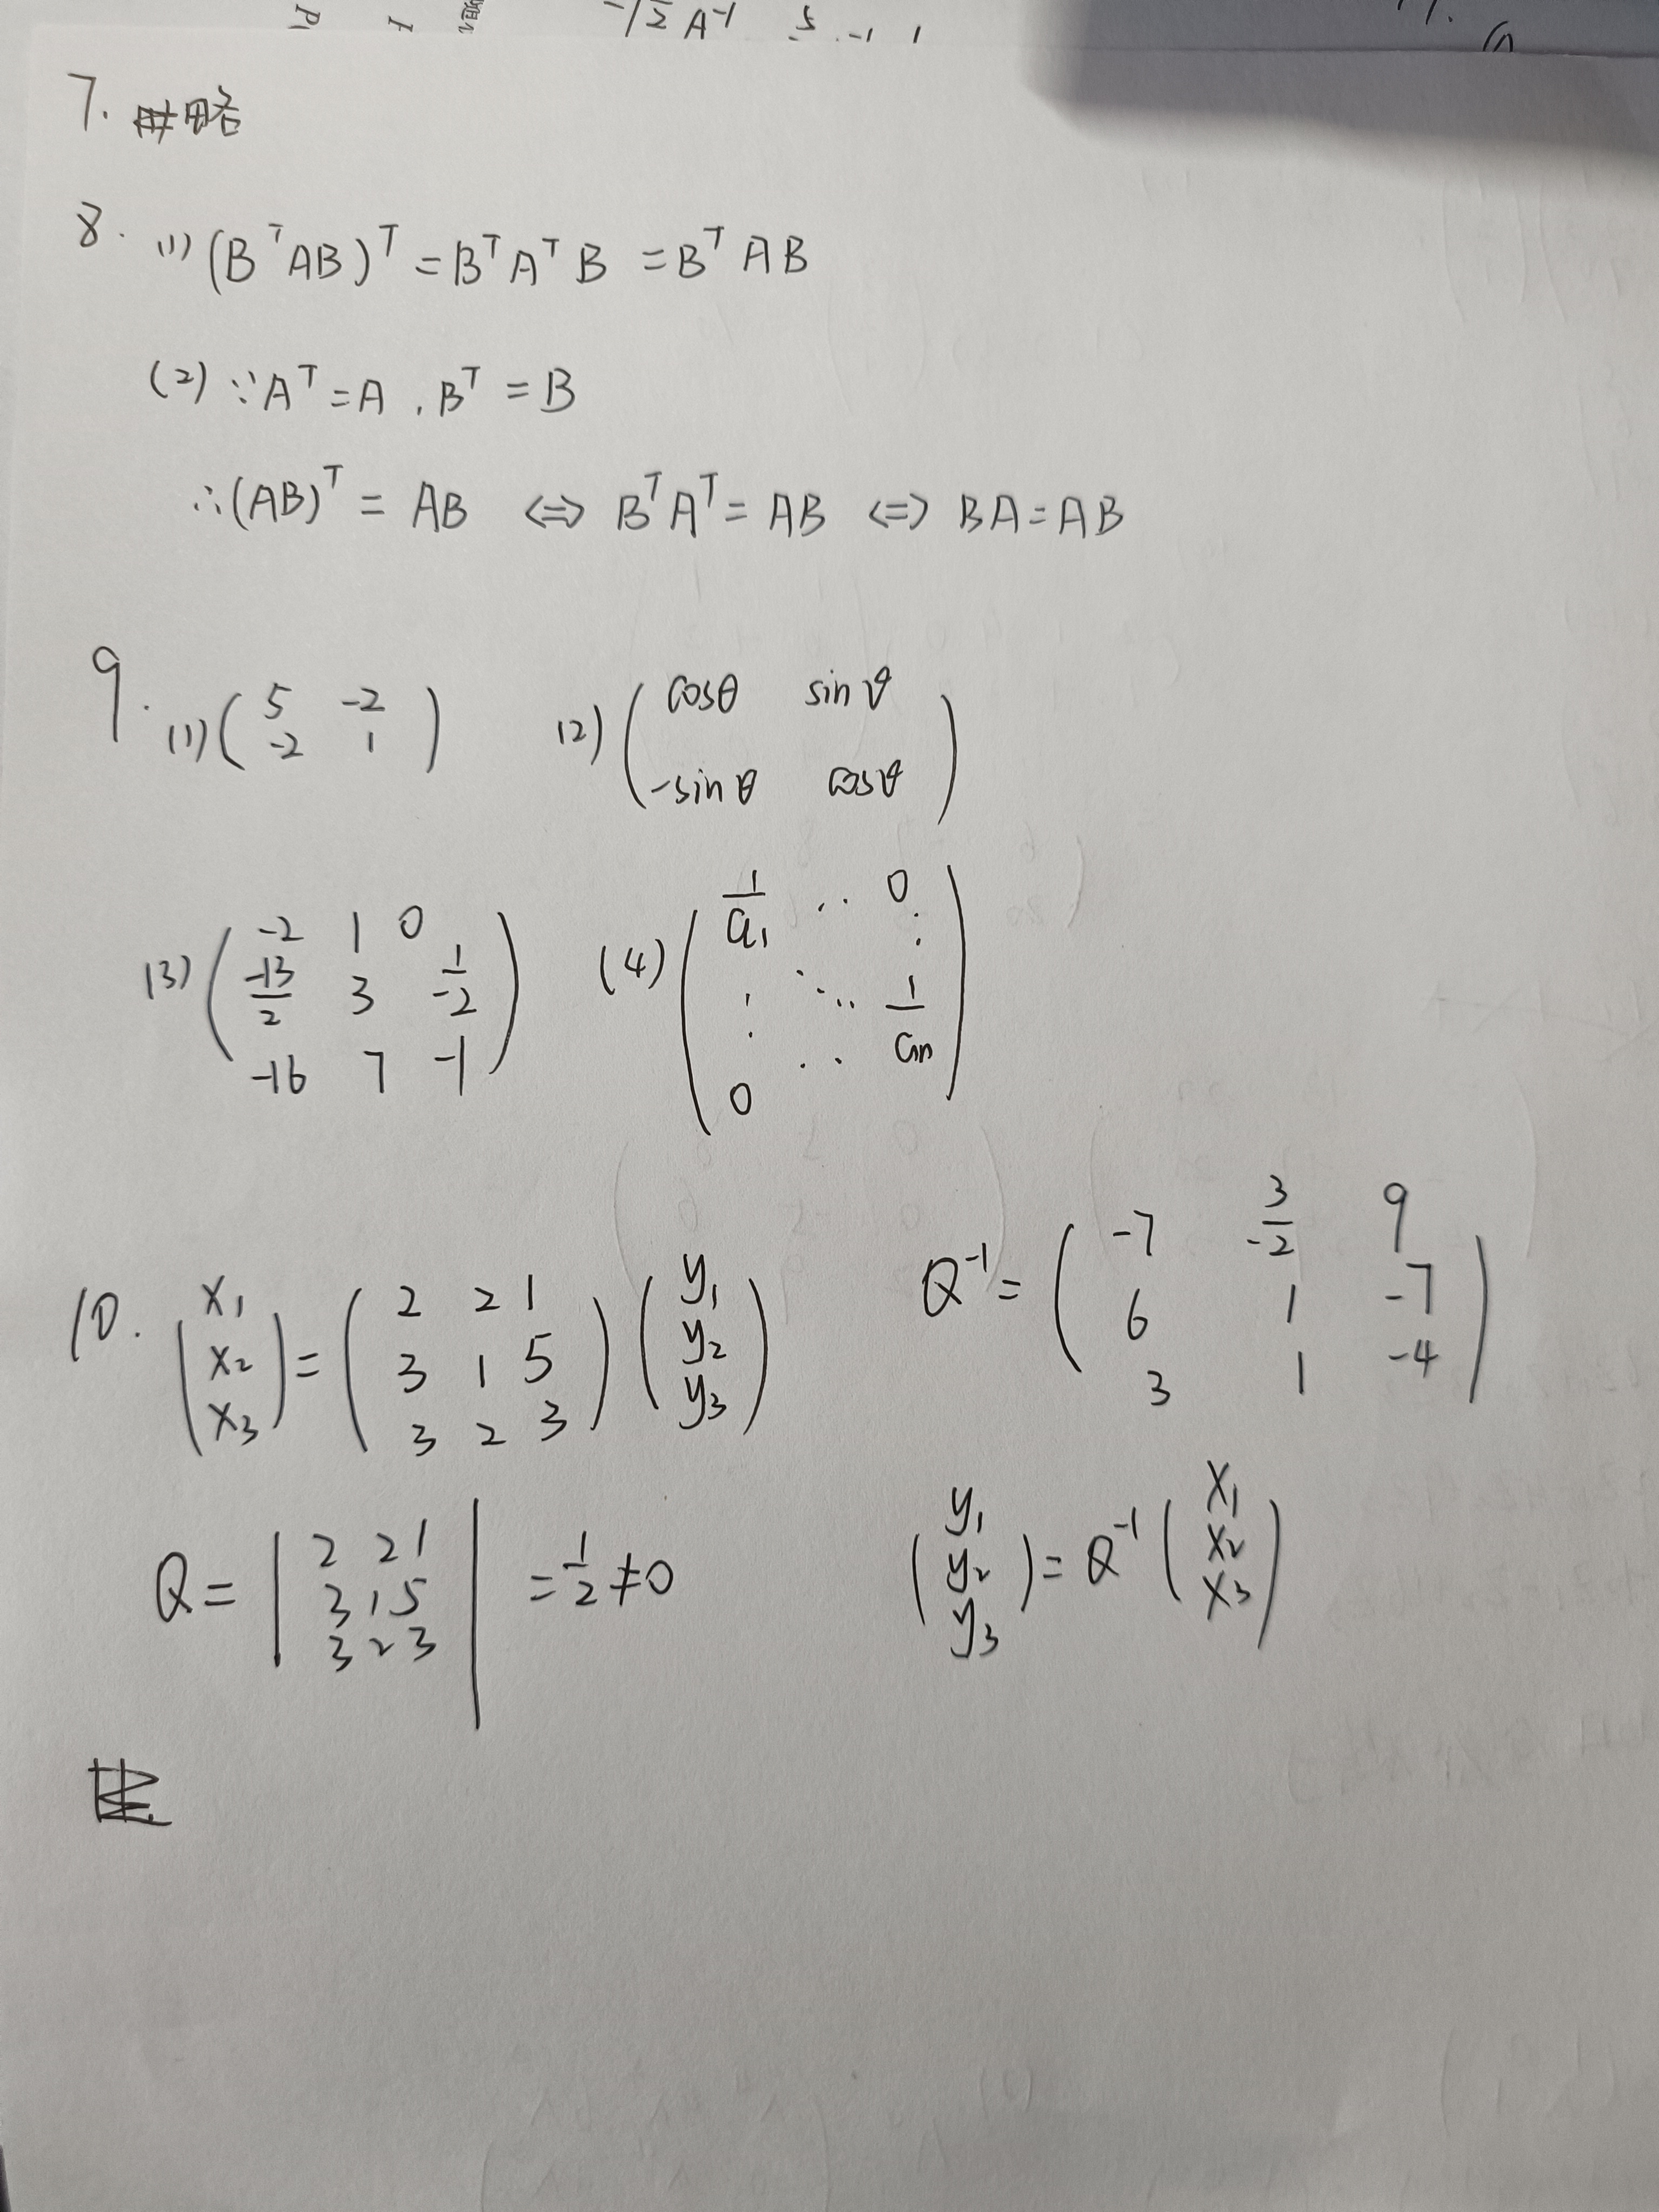 -1/2 A-1 5 -1 1
7. 略
8. (1) (BᵀAB)ᵀ = BᵀAᵀB = BᵀAB
(2) ∵Aᵀ=A , Bᵀ=B
∴(AB)ᵀ = AB ⟺ BᵀAᵀ = AB ⟺ BA=AB
9. (1) ( 5 -2 (2) ( cosθ sinθ
-2 1 ) -sinθ cosθ )
(3) ( -2 1 0 (4) ( 1/a₁ ·· 0
-13/2 3 1/-2 : ⋱ 1/aₙ
-16 7 -1 ) 0 ·· )
10. ( x₁ x₂ x₃ ) = ( 2 2 1
3 1 5
3 2 3 ) ( y₁ y₂ y₃ )
Q⁻¹ = ( -7 3/-2 9
6 1 -7
3 1 -4 )
Q = | 2 2 1
3 1 5
3 2 3 | = 1/2 ≠0
( y₁ y₂ y₃ ) = Q⁻¹ ( x₁ x₂ x₃ )